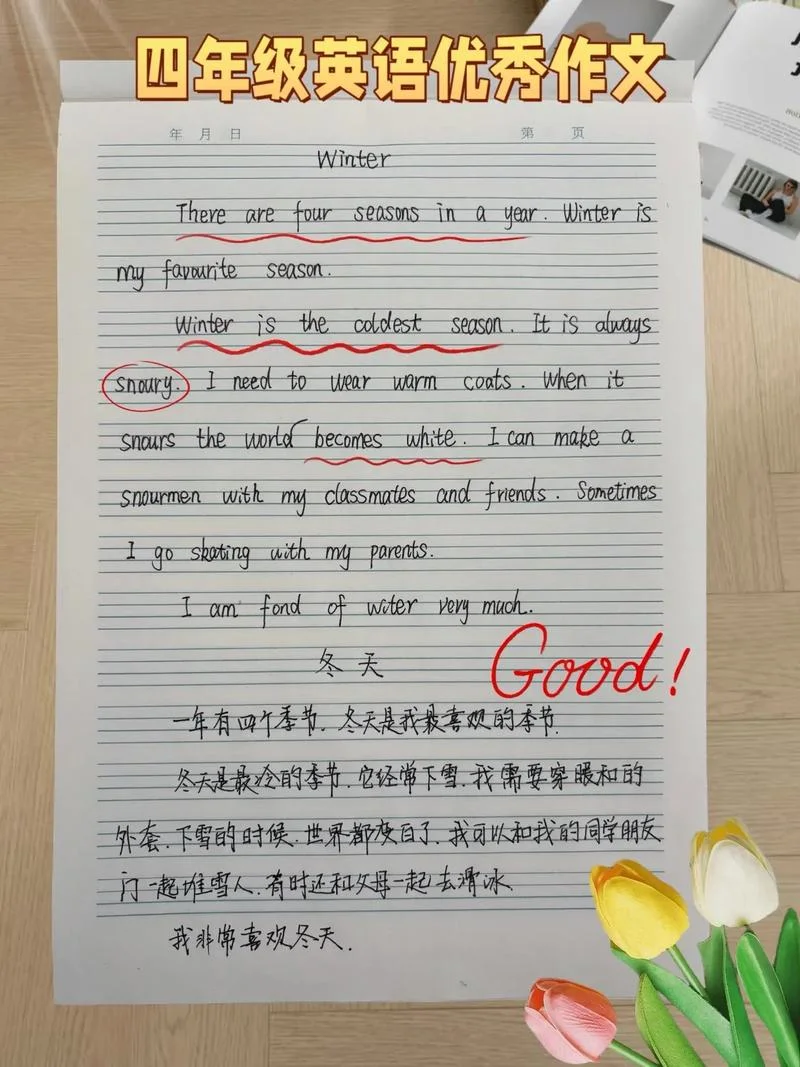 四年级英语优秀作文
年 月 日 第 页
Winter
There are four seasons in a year. Winter is
my favourite season.
Winter is the coldest season. It is always
snoury. I need to wear warm coats. When it
snours the world becomes white. I can make a
snourmen with my classmates and friends. Sometimes
I go skating with my parents.
I am fond of witer very much.
Good!
冬天
一年有四个季节.冬天是我最喜欢的季节.
冬天是最冷的季节.它经常下雪.我需要穿暖和的
外套.下雪的时候.世界都变白了.我可以和我的同学朋友
门一起堆雪人.有时还和父母一起去滑冰.
我非常喜欢冬天.